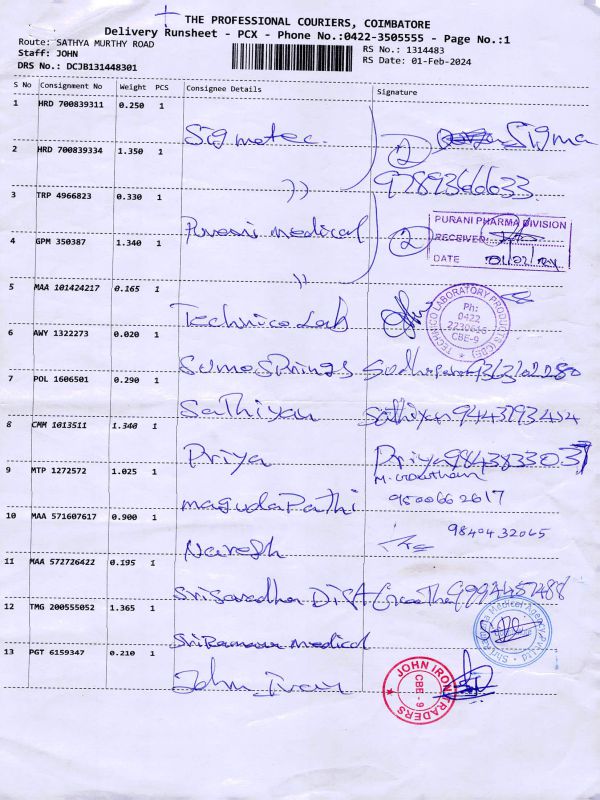 THE PROFESSIONAL COURIERS, COIMBATORE
Delivery Runsheet - PCX - Phone No.:0422-3505555 - Page No.:1
Route: SATHYA MURTHY ROAD
Staff: JOHN
DRS No.: DCJB131448301
RS No.: 1314483
RS Date: 01-Feb-2024
S No Consignment No Weight PCS Consignee Details Signature
1 HRD 700839311 0.250 1
Sigmatec. 2 Sigma
2 HRD 700839334 1.350 1
)) 9789366633
3 TRP 4966823 0.330 1
Purani medical 2
PURANI PHARMA DIVISION
RECEIVED
DATE 01/02/24
4 GPM 350387 1.340 1
))
5 MAA 101424217 0.165 1
Technico Lab
TECHNICO LABORATORY PRODUCTS (CBE)
Ph:
0422
2230616
CBE-9
6 AWY 1322273 0.020 1
Sumo Springs
7 POL 1606501 0.290 1
Sathiyan Sathiyan
8 CMM 1013511 1.340 1
Priya Priya 9843833037
9 MTP 1272572 1.025 1
magudapathi M. Gowtham
9500662617
10 MAA 571607617 0.900 1
Naresh 9840432065
11 MAA 572726422 0.195 1
12 TMG 200555052 1.365 1
Medical
13 PGT 6159347 0.210 1
John
JOHN IRON TRADERS
CBE - 9